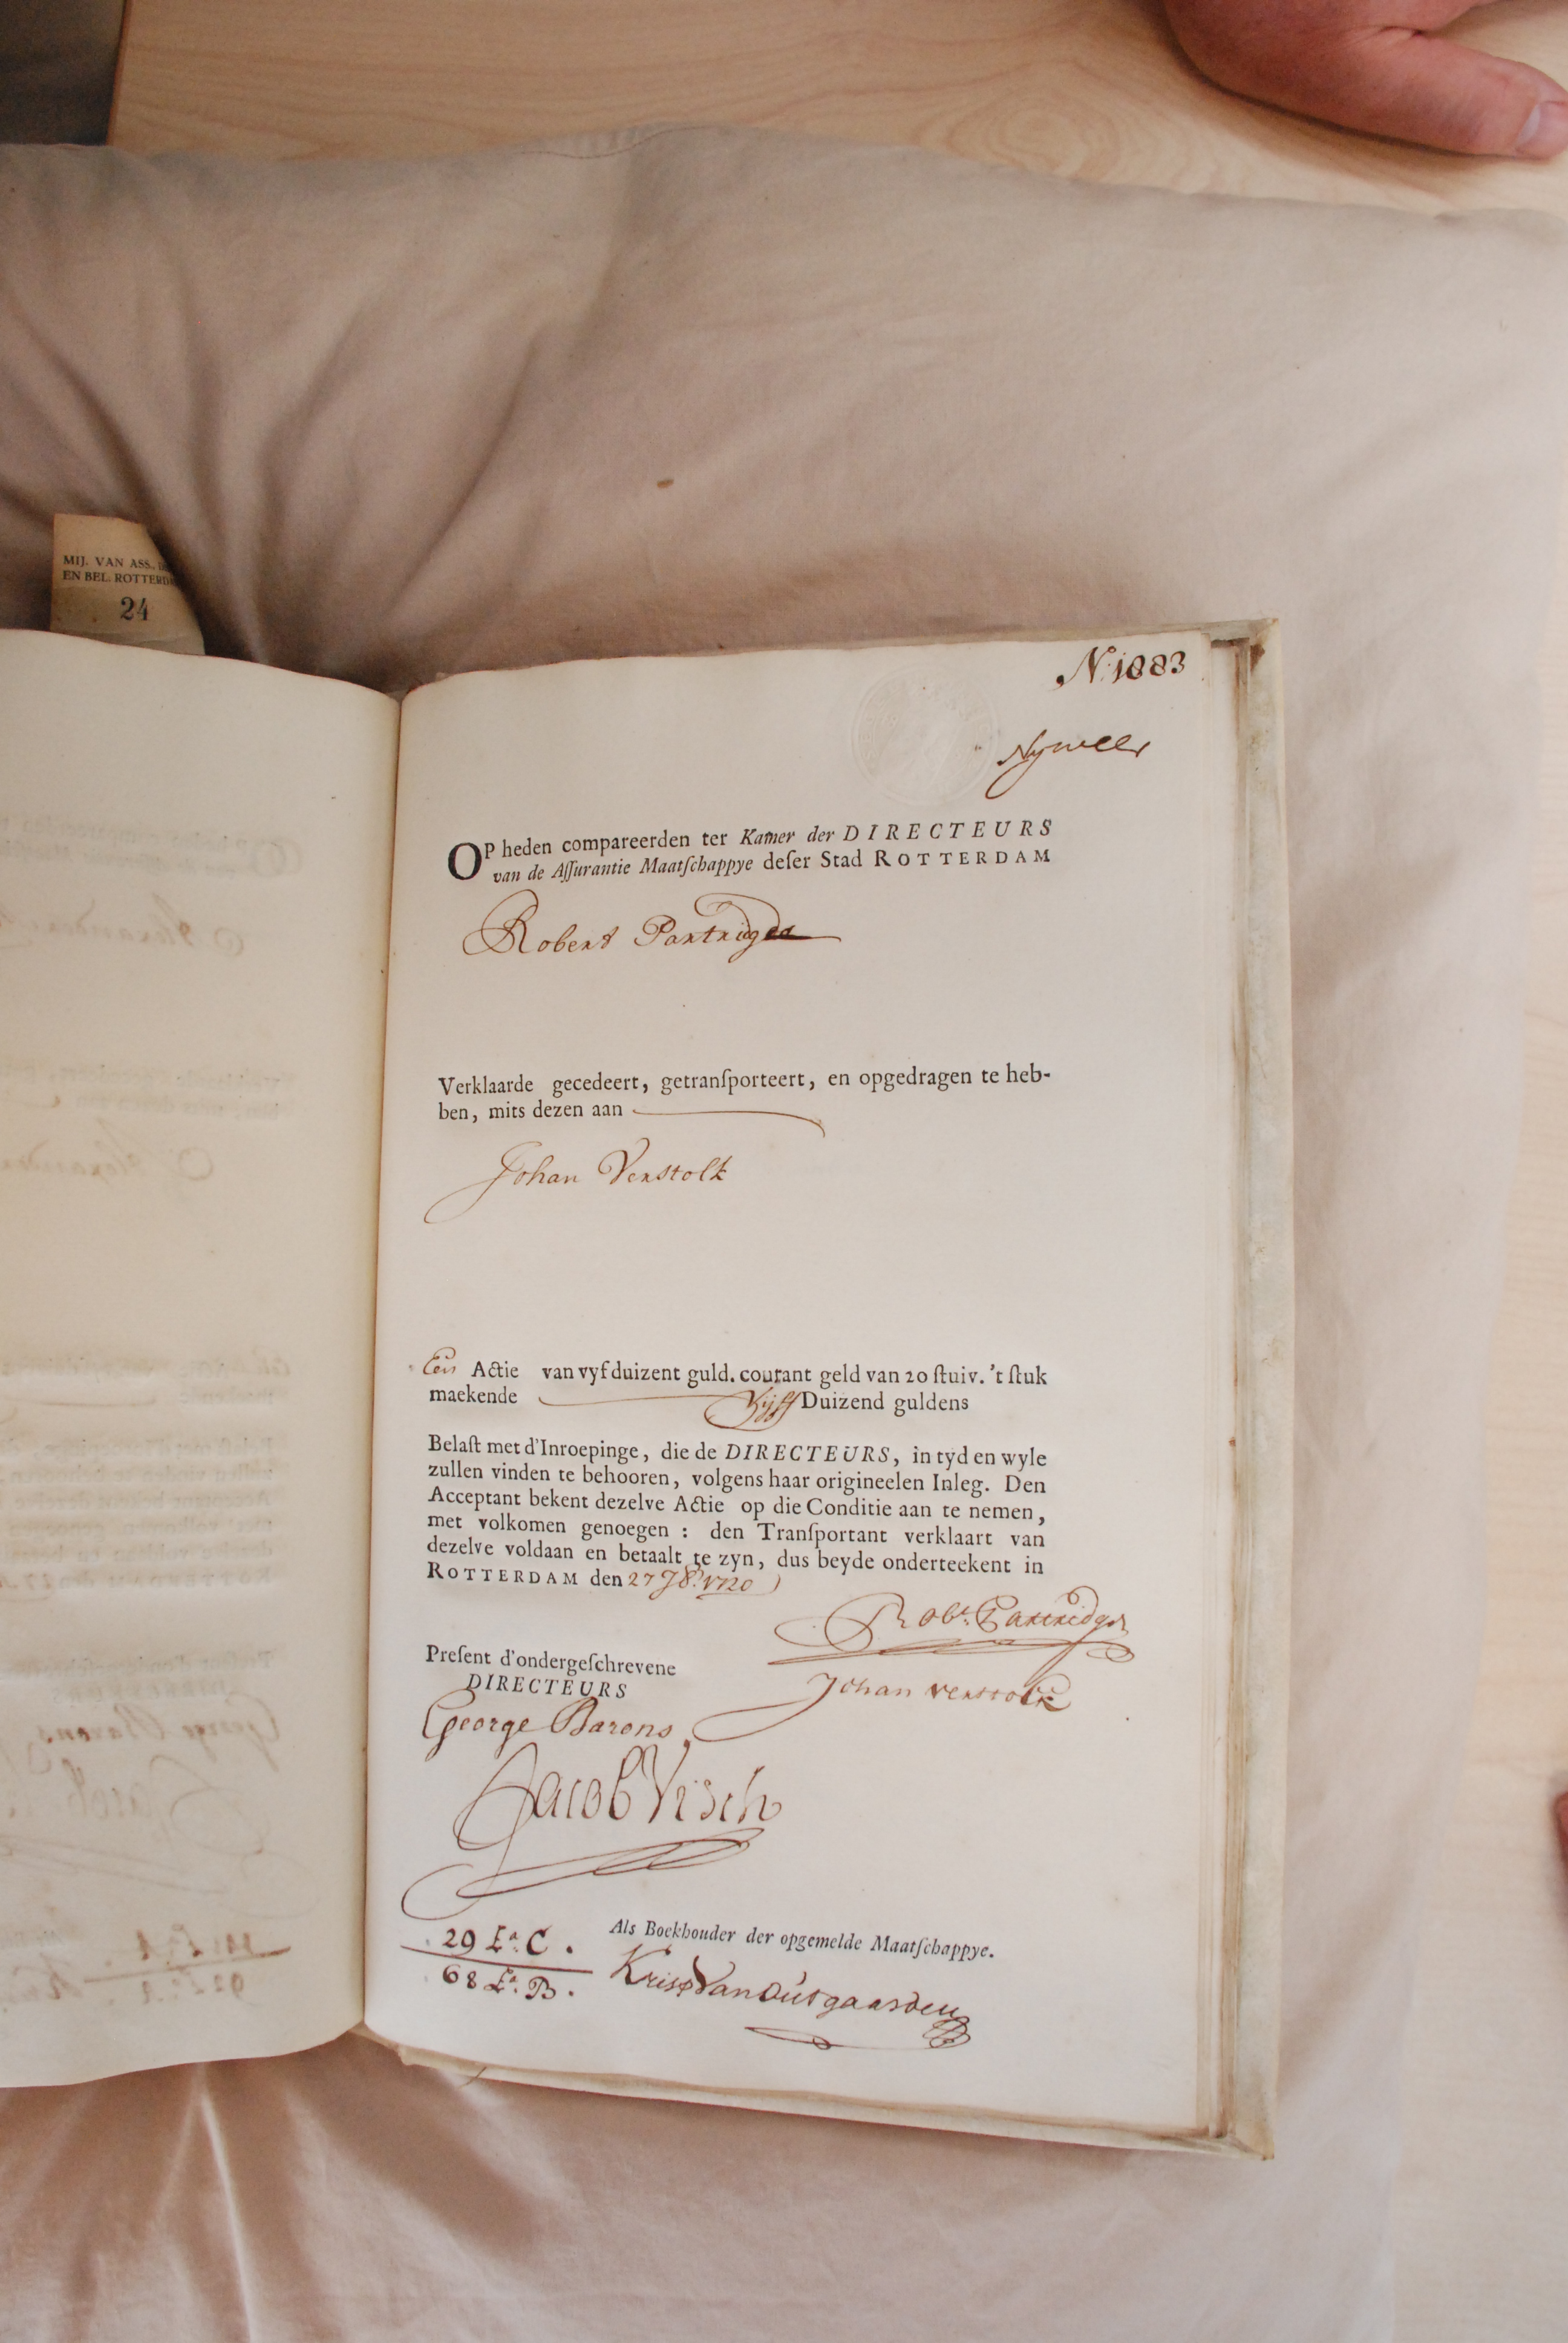 MIJ. VAN ASS.
EN BEL. ROTTERD
24
N: 1883
OP heden compareerden ter Kamer der DIRECTEURS
van de Aſſurantie Maatſchappye deſer Stad ROTTERDAM
Robert Partridge
Verklaarde gecedeert, getranſporteert, en opgedragen te heb-
ben, mits dezen aan
Johan Verstolk
Een Actie van vyfduizent guld. courant geld van 20 ſtuiv. 't ſtuk
maekende Vijff Duizend guldens
Belaſt met d'Inroepinge, die de DIRECTEURS, in tyd en wyle
zullen vinden te behooren, volgens haar origineelen Inleg. Den
Acceptant bekent dezelve Actie op die Conditie aan te nemen,
met volkomen genoegen : den Tranſportant verklaart van
dezelve voldaan en betaalt te zyn, dus beyde onderteekent in
ROTTERDAM den 27 7br. 1720
Robt. Partridge
Preſent d'ondergeſchrevene
DIRECTEURS
Johan Verstolk
George Barons,
Jacob Visch
29 La. C.
Als Boekhouder der opgemelde Maatſchappye.
68 La. B.
Krisp Van Outgaarden